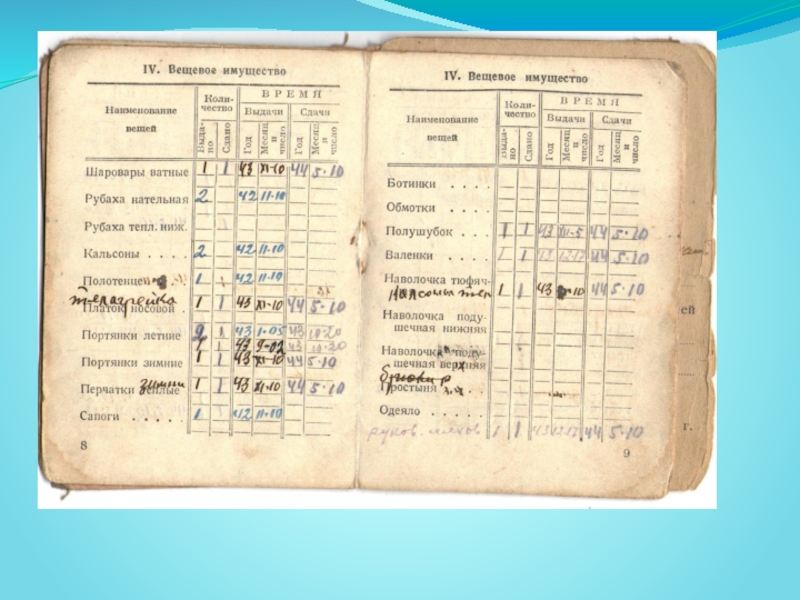 IV. Вещевое имущество
Наименование вещей
Количество
ВРЕМЯ
Выдачи
Сдачи
Выдано
Сдано
Год
Месяц и число
Год
Месяц и число
Шаровары ватные 1 1 43 XI-10 44 5.10
Рубаха нательная 2 42 11-10
Рубаха тепл. ниж.
Кальсоны . . . . 2 42 11-10
Полотенце 1 42 11-10
телогрейка
Платок носовой . 1 1 43 XI-10 44 5.10
Портянки летние 2 1 43 1-05 43 10.20
1 43 9-02 43 10.20
Портянки зимние 1 1 43 XI-10 44 5.10
Перчатки теплые зимни 1 1 43 XI-10 44 5.10
Сапоги . . . . . 1 42 11-10
8
IV. Вещевое имущество
Наименование вещей
Количество
ВРЕМЯ
Выдачи
Сдачи
Выдано
Сдано
Год
Месяц и число
Год
Месяц и число
Ботинки . . . .
Обмотки . . . .
Полушубок . . . 1 1 43 XII-5 44 5.10
Валенки . . . . 1 1 43 12-12 44 5.10
Наволочка тюфяч-
кальсоны теп 1 1 43 10 44 5.10
Наволочка поду-
шечная нижняя
Наволочка поду-
шечная верхняя
брюки
Простыня
Одеяло . . . . .
руков. мехов 1 1 43 12-12 44 5.10
9
ей
г.